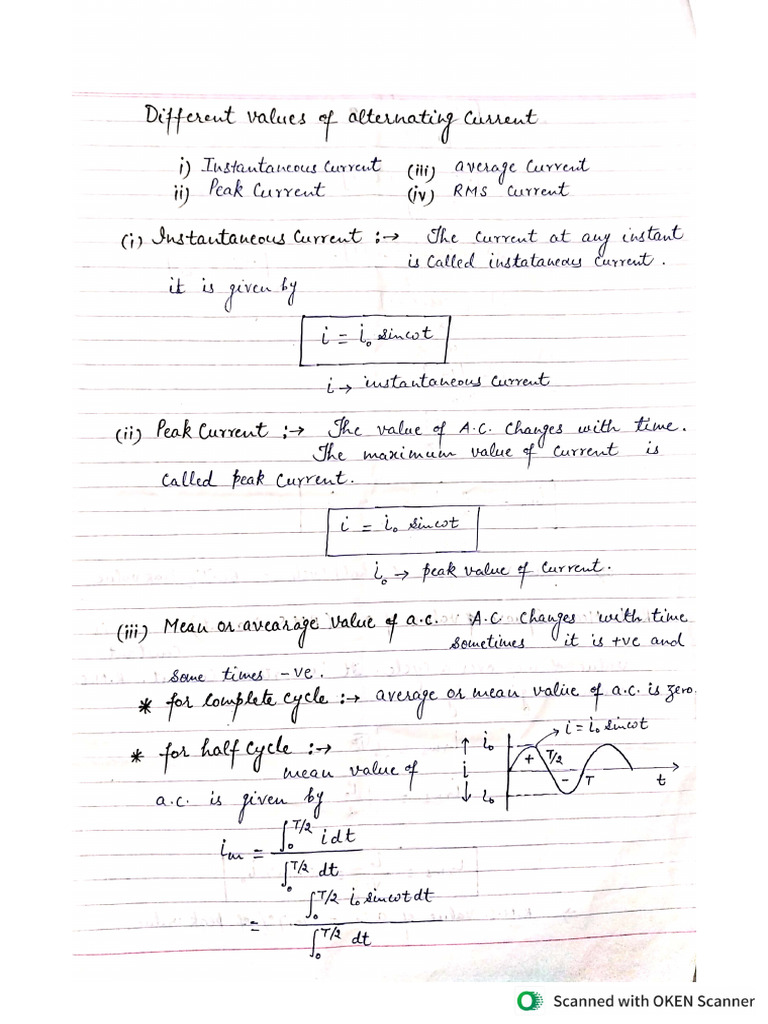 Different values of alternating current
i) Instantaneous Current (iii) average Current
ii) Peak Current (iv) RMS Current
(i) Instantaneous Current :→ The current at any instant
is called instataneous current.
it is given by
i = i₀ sinωt
i → instantaneous current
(ii) Peak Current :→ The value of A.C. changes with time.
The maximum value of current is
called peak current.
i = i₀ sinωt
i₀ → peak value of current.
(iii) Mean or avearage value of a.c. A.C changes with time
sometimes it is +ve and
some times -ve.
* for complete cycle :→ average or mean value of a.c. is zero.
* for half cycle :→
mean value of
a.c. is given by
↑ i₀ i ↓ i₀ + T/2 - T t → i = i₀ sinωt
iₘ = ∫₀^T/2 i dt / ∫₀^T/2 dt
= ∫₀^T/2 i₀ sinωt dt / ∫₀^T/2 dt
Scanned with OKEN Scanner